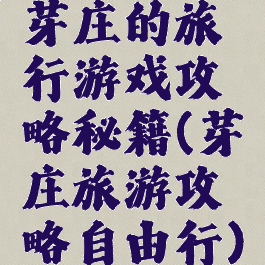 芽庄的旅
行游戏攻
略秘籍(芽
庄旅游攻
略自由行)